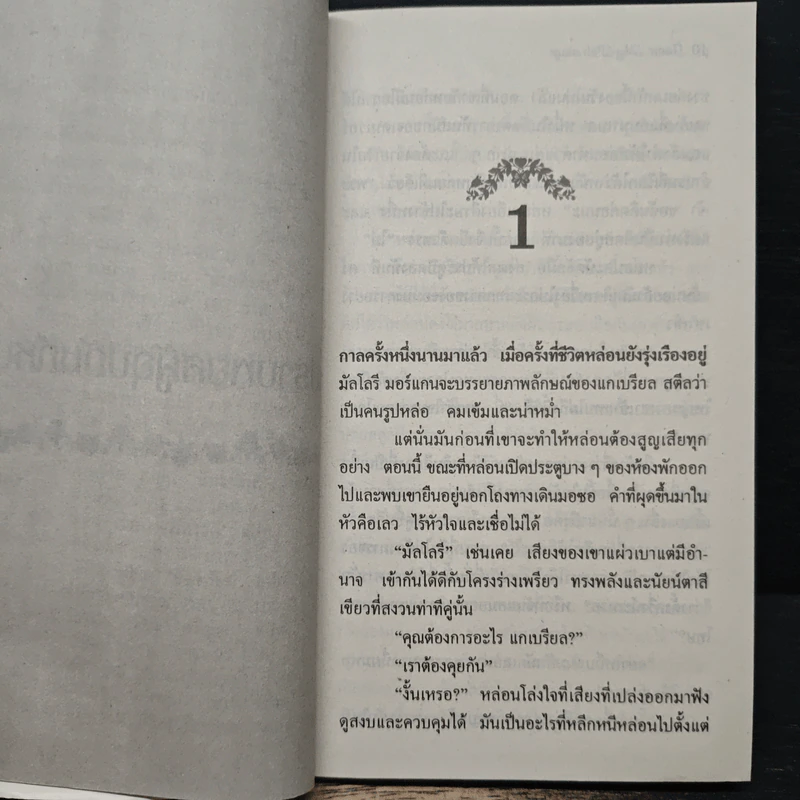 1
กาลครั้งหนึ่งนานมาแล้ว เมื่อครั้งที่ชีวิตหล่อนยังรุ่งเรืองอยู่
มัลโลรี มอร์แกนจะบรรยายภาพลักษณ์ของแกเบรียล สตีลว่า
เป็นคนรูปหล่อ คมเข้มและน่าหม่ำ
แต่นั่นมันก่อนที่เขาจะทำให้หล่อนต้องสูญเสียทุก
อย่าง ตอนนี้ ขณะที่หล่อนเปิดประตูบาง ๆ ของห้องพักออก
ไปและพบเขายืนอยู่นอกโถงทางเดินมอซอ คำที่ผุดขึ้นมาใน
หัวคือเลว ไร้หัวใจและเชื่อไม่ได้
“มัลโลรี” เช่นเคย เสียงของเขาแผ่วเบาแต่มีอำ-
นาจ เข้ากันได้ดีกับโครงร่างเพรียว ทรงพลังและนัยน์ตาสี
เขียวที่สงวนท่าทีคู่นั้น
“คุณต้องการอะไร แกเบรียล?”
“เราต้องคุยกัน”
“งั้นเหรอ?” หล่อนโล่งใจที่เสียงที่เปล่งออกมาฟัง
ดูสงบและควบคุมได้ มันเป็นอะไรที่หลีกหนีหล่อนไปตั้งแต่